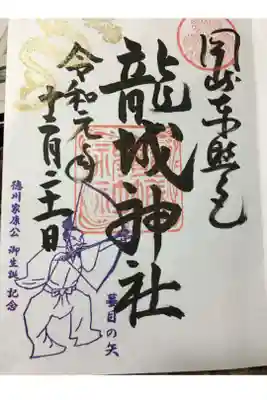 岡崎東照宮
龍城神社
令和元年
十二月二十一日
徳川家康公 御生誕 記念
蟇目の矢